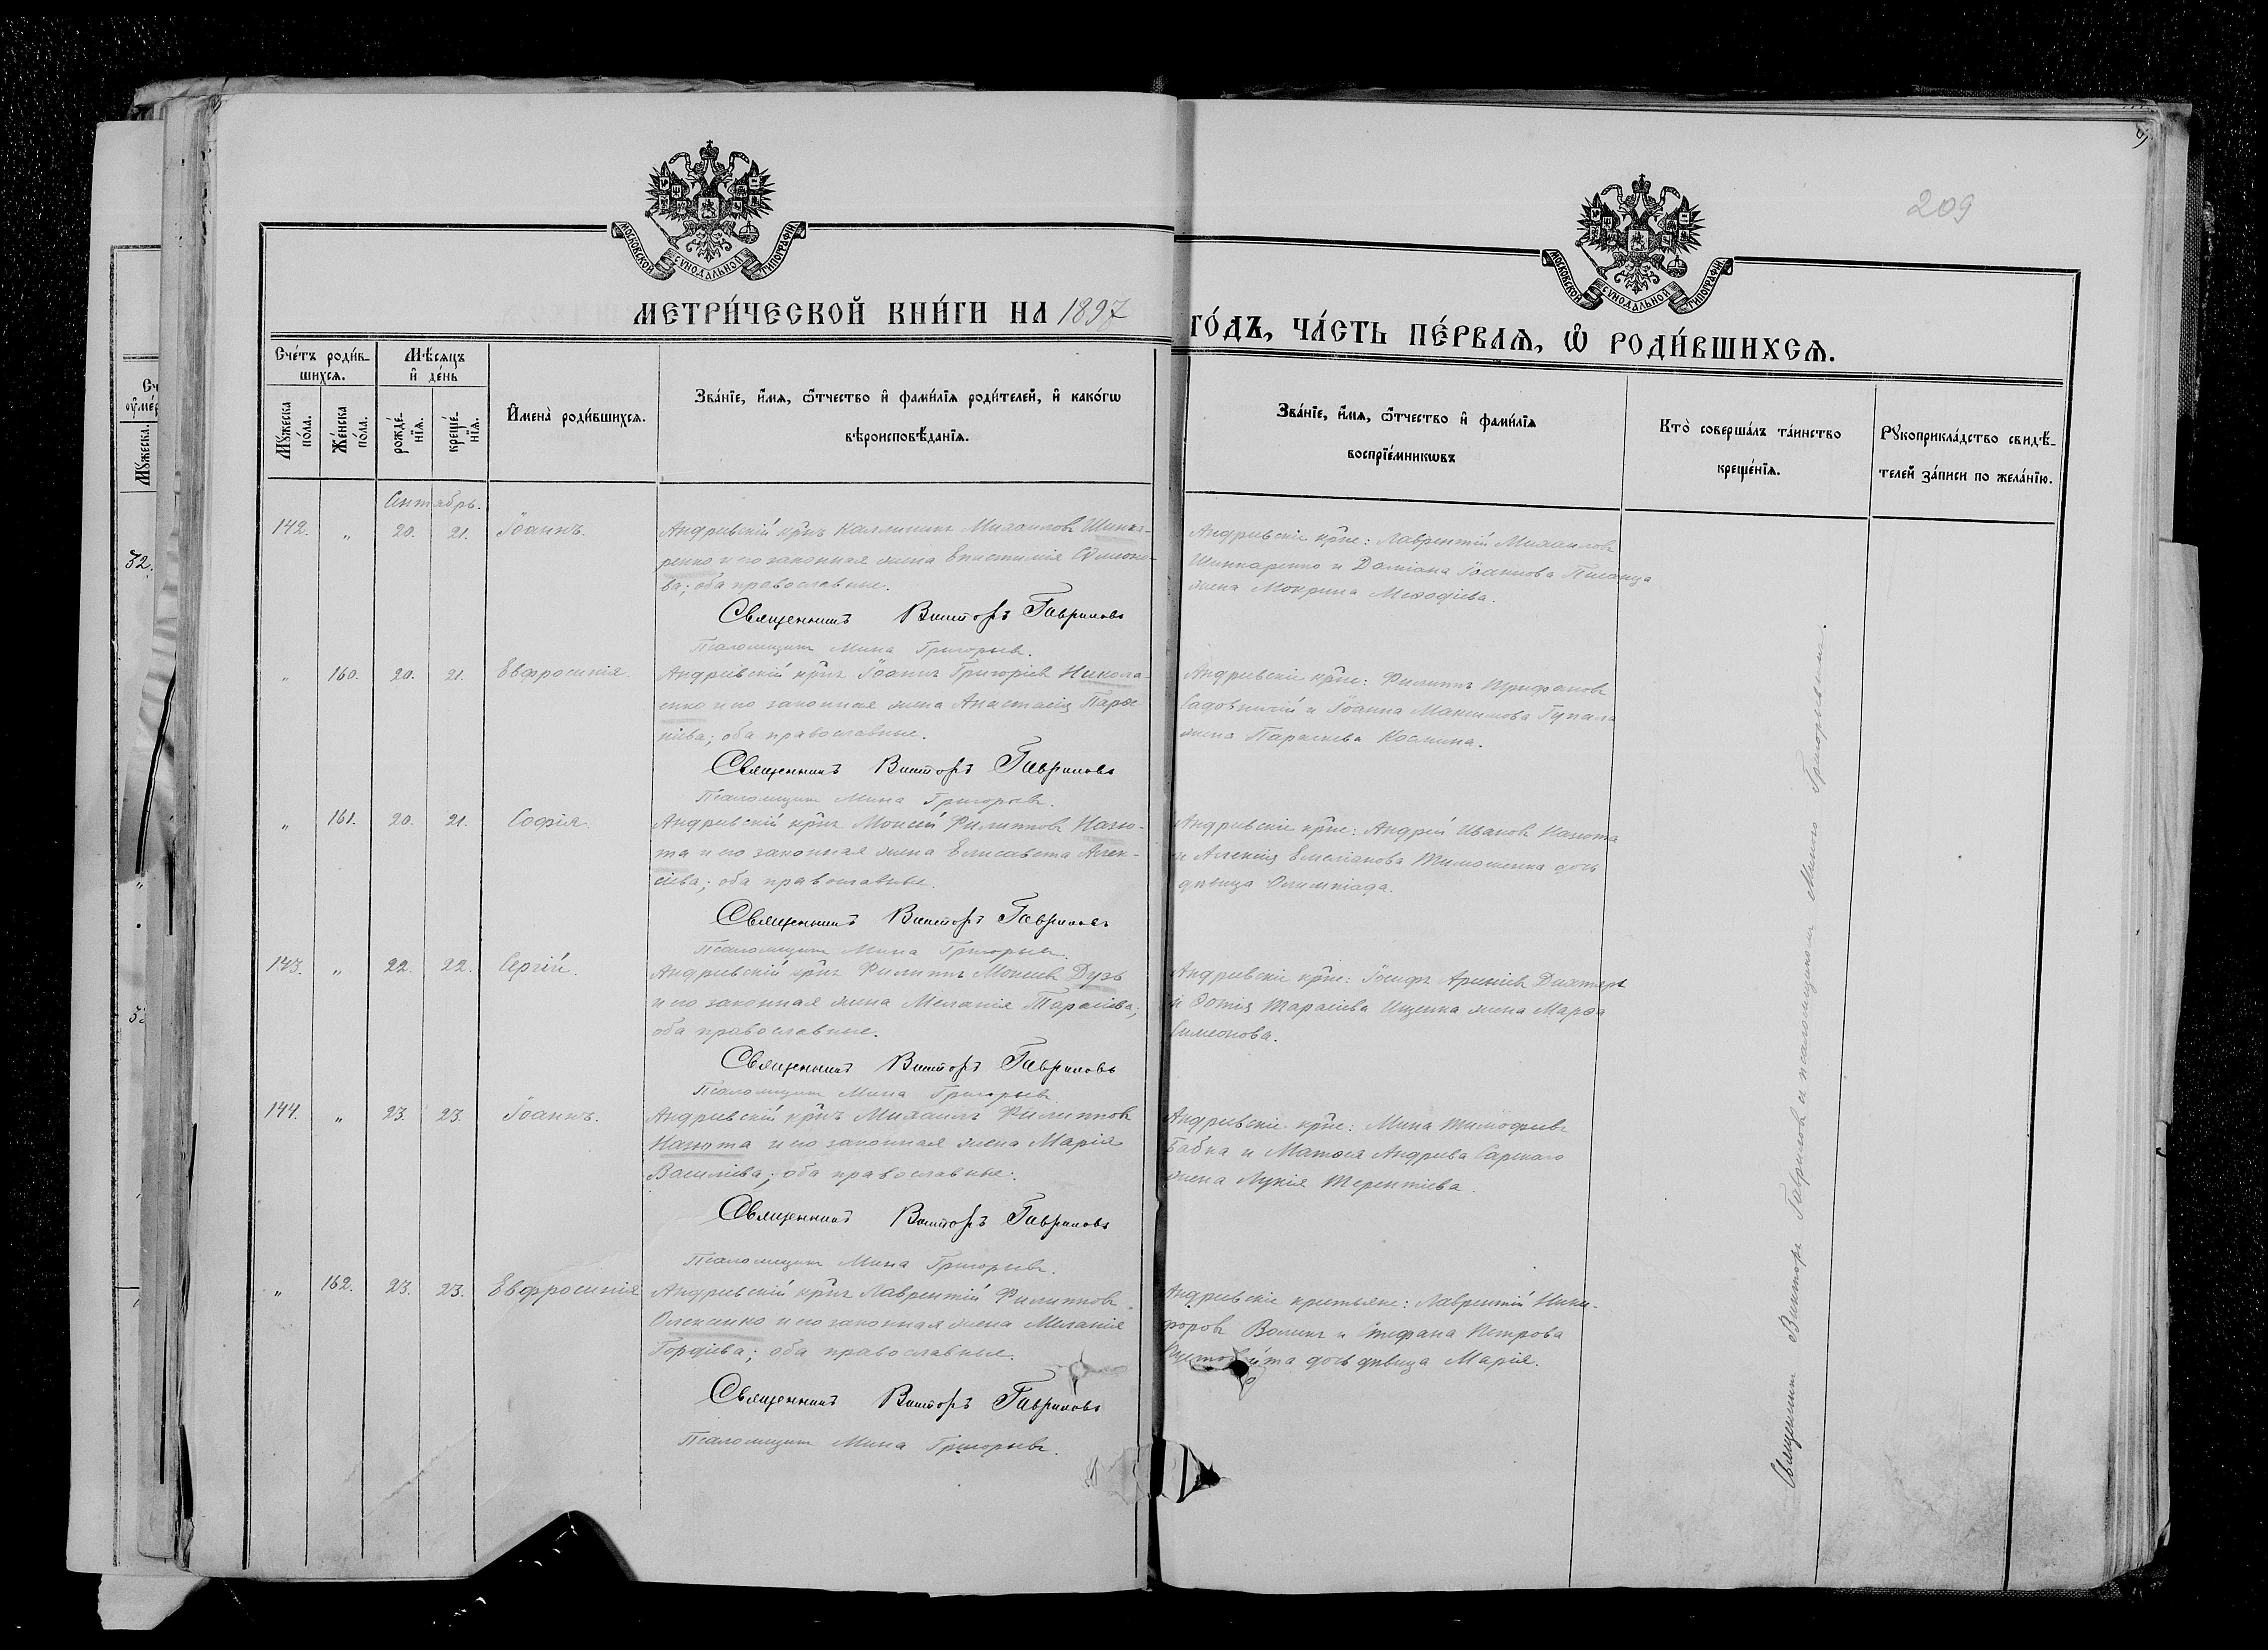 209
МОСКОВСКОЙ СУНОДАЛЬНОЙ ТИПОГРАФІИ
МОСКОВСКОЙ СУНОДАЛЬНОЙ ТИПОГРАФІИ
МЕТРИ́ЧЕСКОЙ КНИ́ГИ НА 1897
ГО́ДЪ, ЧА́СТЬ ПЕ́РВАѦ, Ѽ РОДИ́ВШИХСѦ.
Сче́тъ роди́в-
шихсѧ.
Мѣ́сѧцъ
и҆ де́нь
Мꙋ́жеска
по́ла.
Же́нска
по́ла.
рожде́-
нїѧ.
креще́-
нїѧ.
И҆мена̀ роди́вшихсѧ.
Зва́нїе, и҆́мѧ, ѻ҆́тчество и҆ фами́лїѧ роди́телей, и҆ како́гѡ
вѣроисповѣ́данїѧ.
Зва́нїе, и҆́мѧ, ѻ҆́тчество и҆ фами́лїѧ
воспрїе́мникѡвъ
Кто̀ соверша́лъ та́инство
креще́нїѧ.
Рꙋкоприкла́дство свидѣ́-
телей за́писи по жела́нїю.
Сентябрь.
142. „ 20. 21. Іоаннъ.
Андреевскій кр̃нъ Каллиникъ Михаиловъ Шинка-
ренко и его законная жена Епистимія Сѵмеоно-
ва; оба православные.
Священникъ Викторъ Гавриловъ
Псаломщикъ Мина Григорьевъ.
Андреевскіе кр̃не: Лаврентій Михаиловъ
Шинкаренко и Даміана Іоаннова Писанца
жена Мокрина Меѳодіева.
„ 160. 20. 21. Евфросинія.
Андреевскій кр̃нъ Іоаннъ Григоріевъ Никола-
енко и его законная жена Анастасія Парѳе
ніева; оба православные.
Священникъ Викторъ Гавриловъ
Псаломщикъ Мина Григорьевъ.
Андреевскіе кр̃не: Филиппъ Трифоновъ
Садовничій и Іоанна Максимова Гупала
жена Параскева Космина.
„ 161. 20. 21. Софія.
Андреевскій кр̃нъ Моисей Филипповъ Назю-
та и его законная жена Елисавета Алек-
сіева; оба православные.
Священникъ Викторъ Гавриловъ
Псаломщикъ Мина Григорьевъ.
Андреевскіе кр̃не: Андрей Ивановъ Назюта
и Алексія Емеліанова Тимошенка дочь
дѣвица Олимпіада.
143. „ 22. 22. Сергій.
Андреевскій кр̃нъ Филиппъ Моисеевъ Дузь
и его законная жена Меланія Тарасіева;
оба православные.
Священникъ Викторъ Гавриловъ
Псаломщикъ Мина Григорьевъ.
Андреевскіе кр̃не: Іосифъ Арсеніевъ
и Фотія Тарасіева Ищенка жена Марѳа
Симеонова.
144. „ 23. 23. Іоаннъ.
Андреевскій кр̃нъ Михаилъ Филипповъ
Назюта и его законная жена Марія
Василіева; оба православные.
Священникъ Викторъ Гавриловъ
Псаломщикъ Мина Григорьевъ.
Андреевскіе кр̃не: Мина Тимофеевъ
Бабка и Матѳея Андреева Сарскаго
жена Лукія Терентіева.
„ 162. 23. 23. Евфросинія
Андреевскій кр̃нъ Лаврентій Филипповъ
Олексенко и его законная жена Меланія
Гордіева; оба православные.
Священникъ Викторъ Гавриловъ
Псаломщикъ Мина Григорьевъ.
Андреевскіе крестьяне: Лаврентій Ники-
форовъ Воликъ и Стефана Петрова
дочь дѣвица Марія.
Священникъ Викторъ Гавриловъ и псаломщикомъ Миною Григорьевымъ.